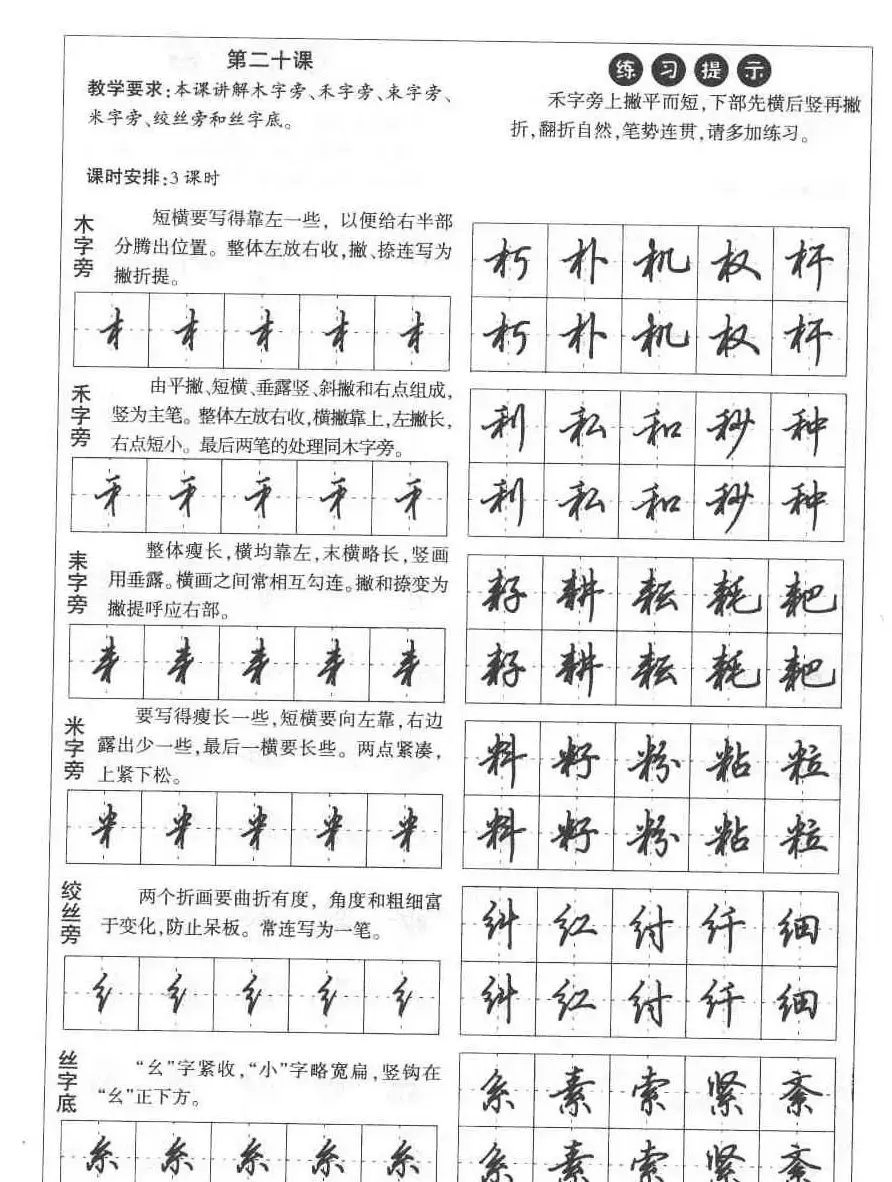 第二十课
教学要求:本课讲解木字旁、禾字旁、耒字旁、
米字旁、绞丝旁和丝字底。
课时安排:3课时
练习提示
禾字旁上撇平而短,下部先横后竖再撇
折,翻折自然,笔势连贯,请多加练习。
木字旁
短横要写得靠左一些，以便给右半部
分腾出位置。整体左放右收,撇、捺连写为
撇折提。
木 木 木 木 木
朽 朴 机 权 杆
朽 朴 机 权 杆
禾字旁
由平撇、短横、垂露竖、斜撇和右点组成,
竖为主笔。整体左放右收,横撇靠上,左撇长,
右点短小。最后两笔的处理同木字旁。
禾 禾 禾 禾 禾
利 私 和 秒 种
利 私 和 秒 种
耒字旁
整体瘦长,横均靠左,末横略长,竖画
用垂露。横画之间常相互勾连。撇和捺变为
撇提呼应右部。
耒 耒 耒 耒 耒
耔 耕 耘 耗 耙
耔 耕 耘 耗 耙
米字旁
要写得瘦长一些,短横要向左靠,右边
露出少一些,最后一横要长些。两点紧凑,
上紧下松。
米 米 米 米 米
料 籽 粉 粘 粒
料 籽 粉 粘 粒
绞丝旁
两个折画要曲折有度，角度和粗细富
于变化,防止呆板。常连写为一笔。
纟 纟 纟 纟 纟
纠 红 纣 纤 细
纠 红 纣 纤 细
丝字底
“幺”字紧收,“小”字略宽扁,竖钩在
“幺”正下方。
糸 糸 糸 糸 糸
系 素 索 紧 紊
系 素 索 紧 紊